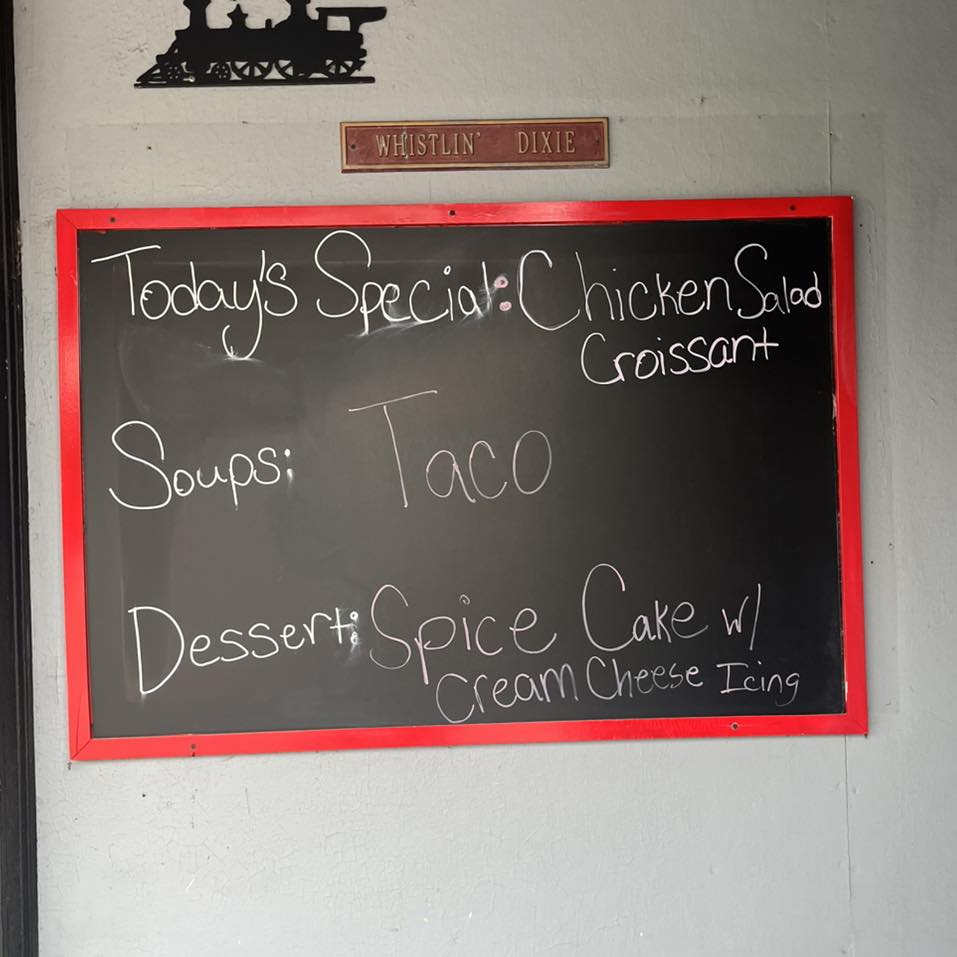 WHISTLIN' DIXIE
Today's Special: Chicken Salad
Croissant
Soups: Taco
Dessert: Spice Cake w/
Cream Cheese Icing